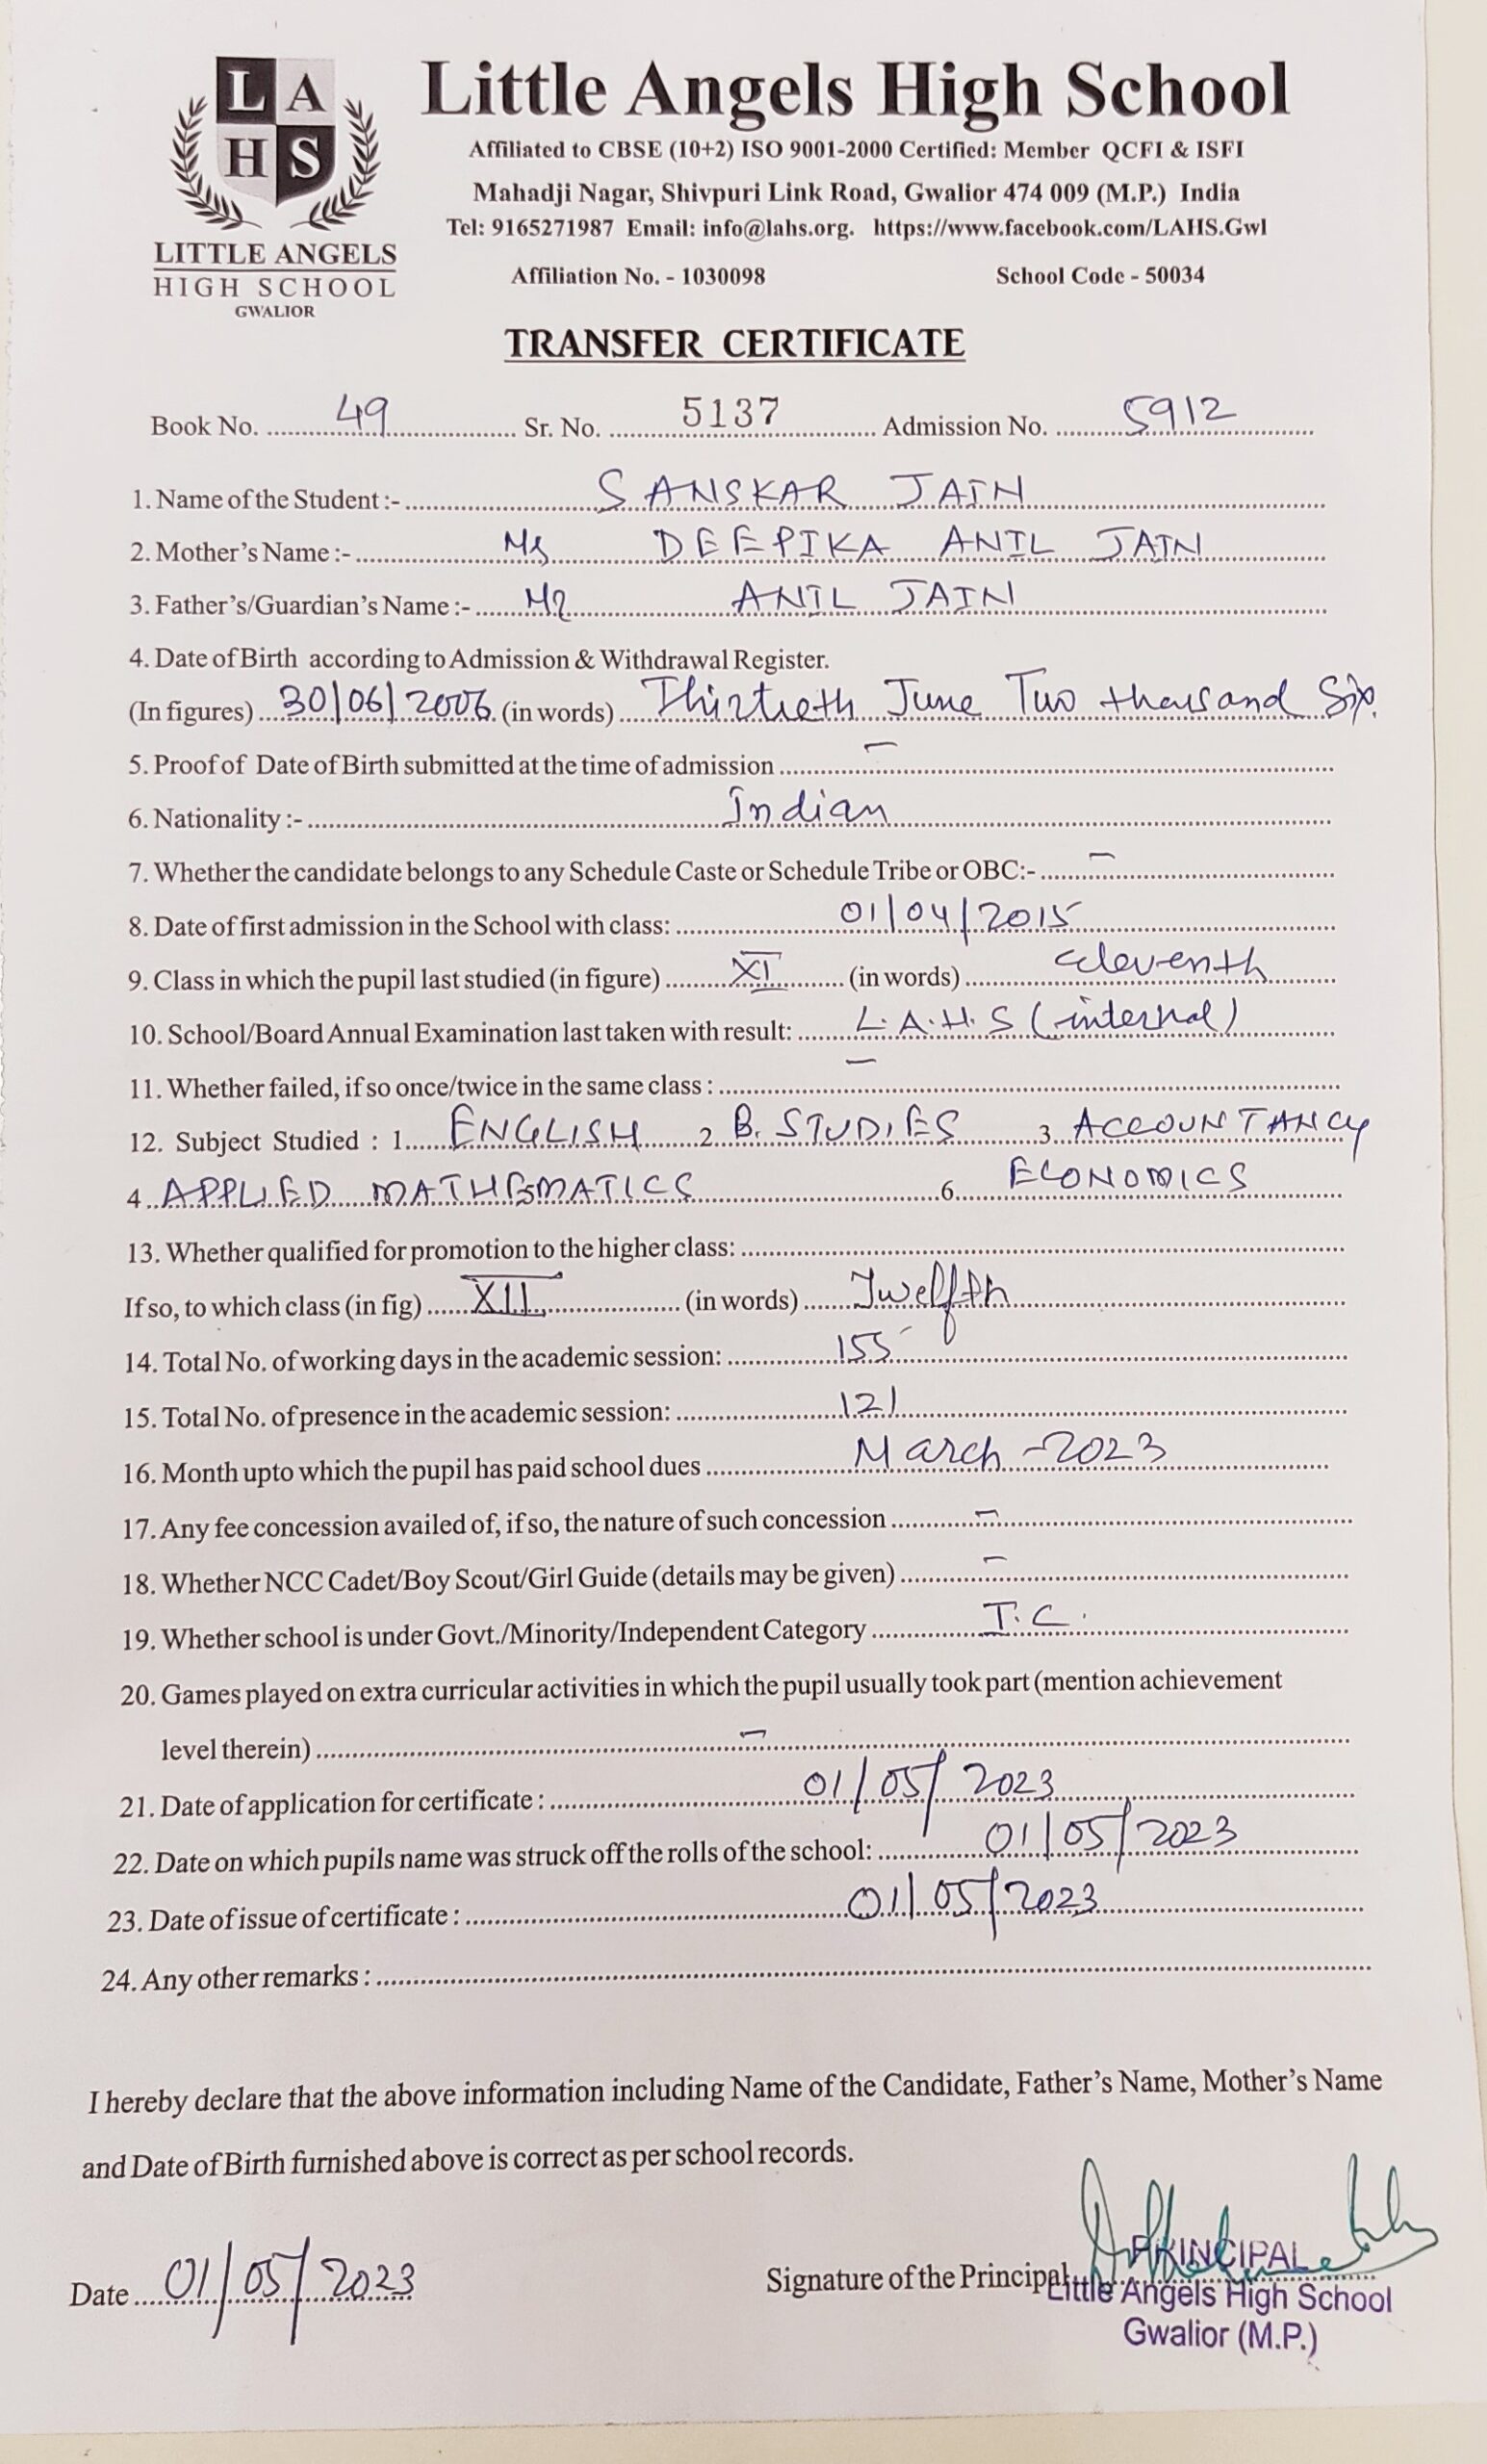 L A
H S
LITTLE ANGELS
HIGH SCHOOL
GWALIOR
Little Angels High School
Affiliated to CBSE (10+2) ISO 9001-2000 Certified: Member QCFI & ISFI
Mahadji Nagar, Shivpuri Link Road, Gwalior 474 009 (M.P.) India
Tel: 9165271987 Email: info@lahs.org. https://www.facebook.com/LAHS.Gwl
Affiliation No. - 1030098 School Code - 50034
TRANSFER CERTIFICATE
Book No. 49 Sr. No. 5137 Admission No. 5912
1. Name of the Student :- SANSKAR JAIN
2. Mother's Name :- Ms DEEPIKA ANIL JAIN
3. Father's/Guardian's Name :- Mr ANIL JAIN
4. Date of Birth according to Admission & Withdrawal Register.
(In figures) 30/06/2006 (in words) Thirtieth June Two thousand Six.
5. Proof of Date of Birth submitted at the time of admission –
6. Nationality :- Indian
7. Whether the candidate belongs to any Schedule Caste or Schedule Tribe or OBC:- –
8. Date of first admission in the School with class: 01/04/2015
9. Class in which the pupil last studied (in figure) XI (in words) eleventh
10. School/Board Annual Examination last taken with result: L.A.H.S (internal)
11. Whether failed, if so once/twice in the same class : –
12. Subject Studied : 1. ENGLISH 2. B. STUDIES 3. ACCOUNTANCY
4. APPLIED MATHEMATICS 6. ECONOMICS
13. Whether qualified for promotion to the higher class:
If so, to which class (in fig) XII (in words) Twelfth
14. Total No. of working days in the academic session: 155
15. Total No. of presence in the academic session: 121
16. Month upto which the pupil has paid school dues March - 2023
17. Any fee concession availed of, if so, the nature of such concession –
18. Whether NCC Cadet/Boy Scout/Girl Guide (details may be given) –
19. Whether school is under Govt./Minority/Independent Category I.C.
20. Games played on extra curricular activities in which the pupil usually took part (mention achievement
level therein) –
21. Date of application for certificate : 01/05/2023
22. Date on which pupils name was struck off the rolls of the school: 01/05/2023
23. Date of issue of certificate : 01/05/2023
24. Any other remarks :
I hereby declare that the above information including Name of the Candidate, Father's Name, Mother's Name
and Date of Birth furnished above is correct as per school records.
Date 01/05/2023 Signature of the Principal
PRINCIPAL
Little Angels High School
Gwalior (M.P.)